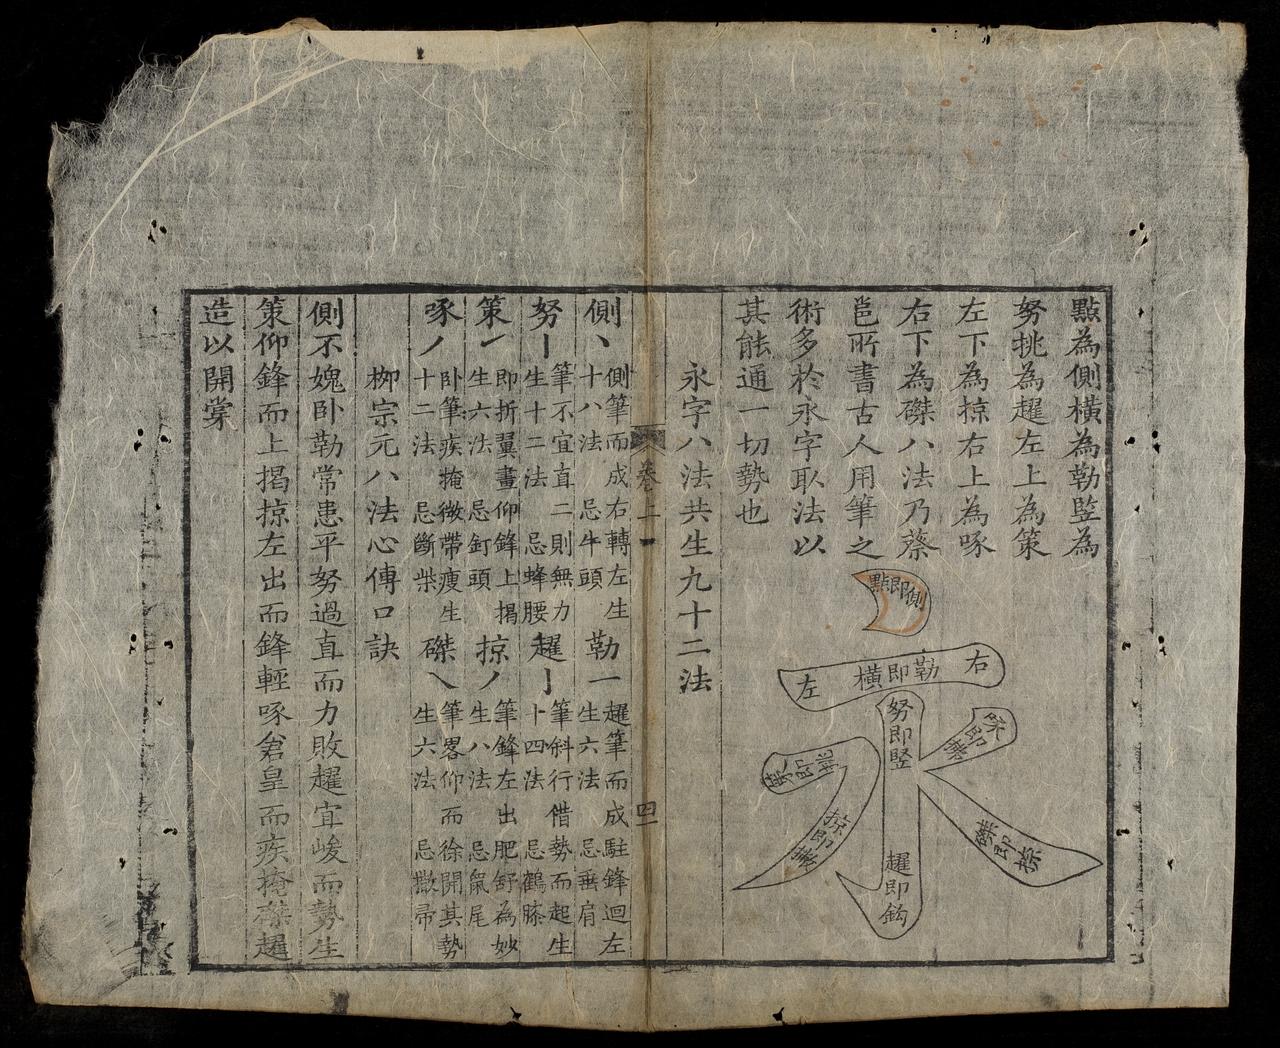 點為側橫為勒竪為
努挑為趯左上為策
左下為掠右上為啄
右下為磔八法乃蔡
邕所書古人用筆之
術多於永字取法以
其能通一切勢也
點即側
右
勒即橫
左
努即竪
趯即鈎
掠即撇
永字八法共生九十二法
卷上
四
側丶
側筆而成右轉左生
十八法 忌牛頭
勒一
趯筆而成駐鋒迴左
生六法 忌垂肩
努丨
筆不宜直二則無力
生十二法 忌蜂腰
趯亅
筆斜行借勢而起生
十四法 忌鶴膝
策㇀
即折翼畫仰鋒上揭
生六法 忌釘頭
掠丿
筆鋒左出肥舒為妙
生八法 忌鼠尾
啄丿
卧筆疾掩微帶瘦生
十二法 忌斷柴
磔乀
筆畧仰而徐開其勢
生六法 忌撒帚
栁宗元八法心傳口訣
側不媿卧勒常患平努過直而力敗趯宜峻而勢生
策仰鋒而上揭掠左出而鋒輕啄倉皇而疾掩磔趯
造以開棠